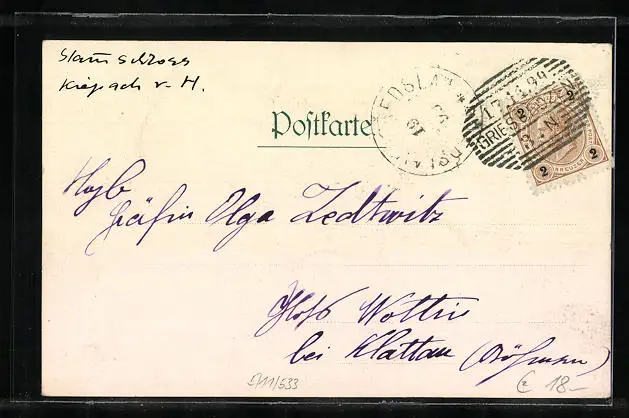 Stammschloss
Kiepach v. H.
Postkarte
17.11.99
GRIES B. BOZEN
2 2 2
KREUZER
Hochgb
Gräfin Olga Zedtwitz
Schloß Wöttin
bei Klattau (Böhmen)
5711/533
18.-